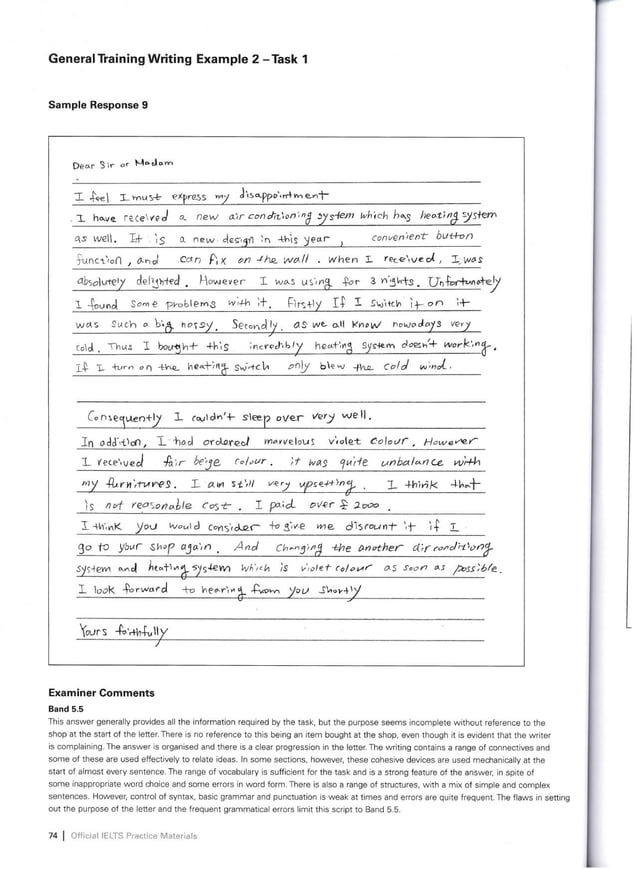 General Training Writing Example 2 – Task 1
Sample Response 9
Dear Sir or Madam
I feel I must express my disappointment
I have received a new air conditioning system which has heating system
as well. It is a new design in this year , convenient button
function , and can fix on the wall . When I received , I was
absolutely delighted . However I was using for 3 nights. Unfortunately
I found some problems with it. Firstly If I switch it on it
was such a big nossy. Secondly, as we all know nowadays very
cold . Thus I bought this incredibly heating system doesn't working.
If I turn on the heating switch only blew the cold wind.
Consequently I couldn't sleep over very well.
In addition, I had ordered marvelous violet colour . However
I received fair beige colour . it was quite unbalance with
my furnitures . I am still very upsetting . I think that
is not reasonable cost . I paid over £ 2000 .
I think you would consider to give me discount it if I
go to your shop again . And Changing the another air conditiong
system and heating system which is violet colour as soon as possible.
I look forward to hearing from you shortly
Yours faithfully
Examiner Comments
Band 5.5
This answer generally provides all the information required by the task, but the purpose seems incomplete without reference to the
shop at the start of the letter. There is no reference to this being an item bought at the shop, even though it is evident that the writer
is complaining. The answer is organised and there is a clear progression in the letter. The writing contains a range of connectives and
some of these are used effectively to relate ideas. In some sections, however, these cohesive devices are used mechanically at the
start of almost every sentence. The range of vocabulary is sufficient for the task and is a strong feature of the answer, in spite of
some inappropriate word choice and some errors in word form. There is also a range of structures, with a mix of simple and complex
sentences. However, control of syntax, basic grammar and punctuation is weak at times and errors are quite frequent. The flaws in setting
out the purpose of the letter and the frequent grammatical errors limit this script to Band 5.5.
74 | Official IELTS Practice Materials